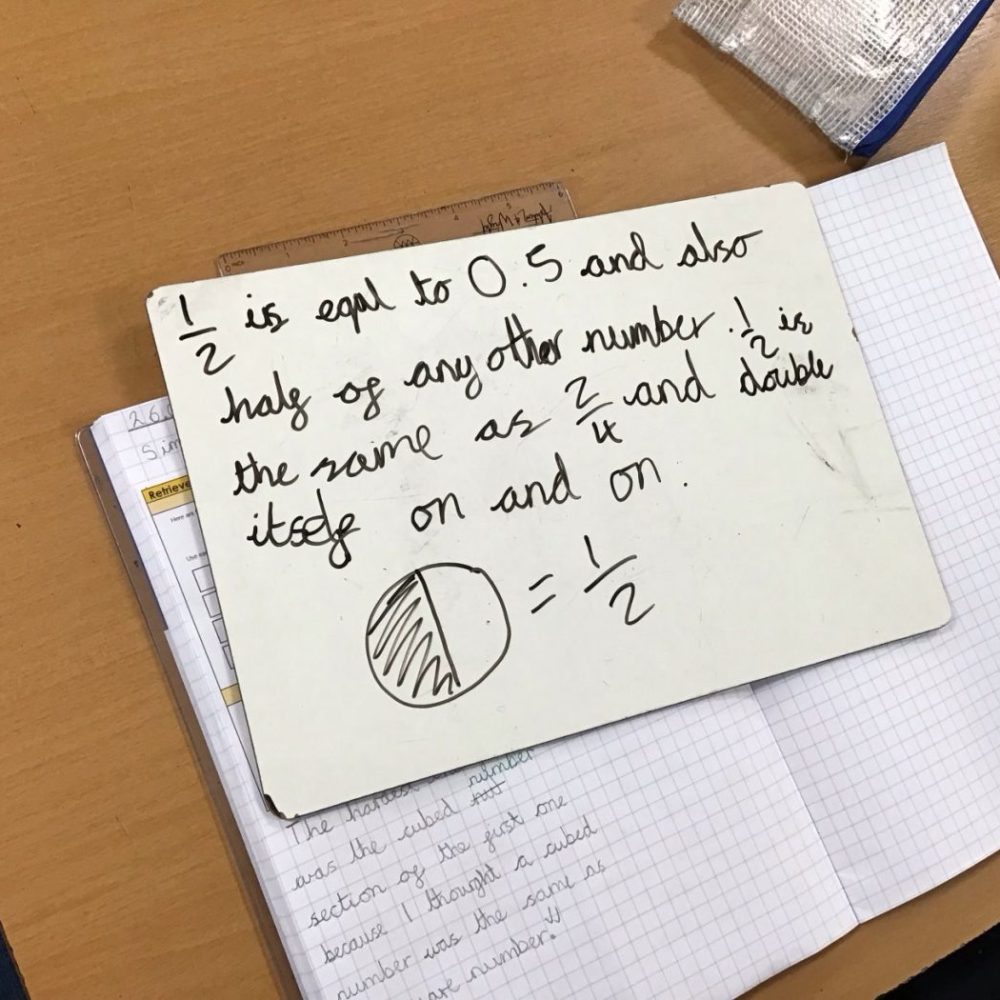 1/2 is eqal to 0.5 and also
half of any other number. 1/2 is
the same as 2/4 and double
itself on and on.
= 1/2
26
Sim
Retrieve
The hardest number
was the cubed
section of the first one
because I thought a cubed
number was the same as
number!!